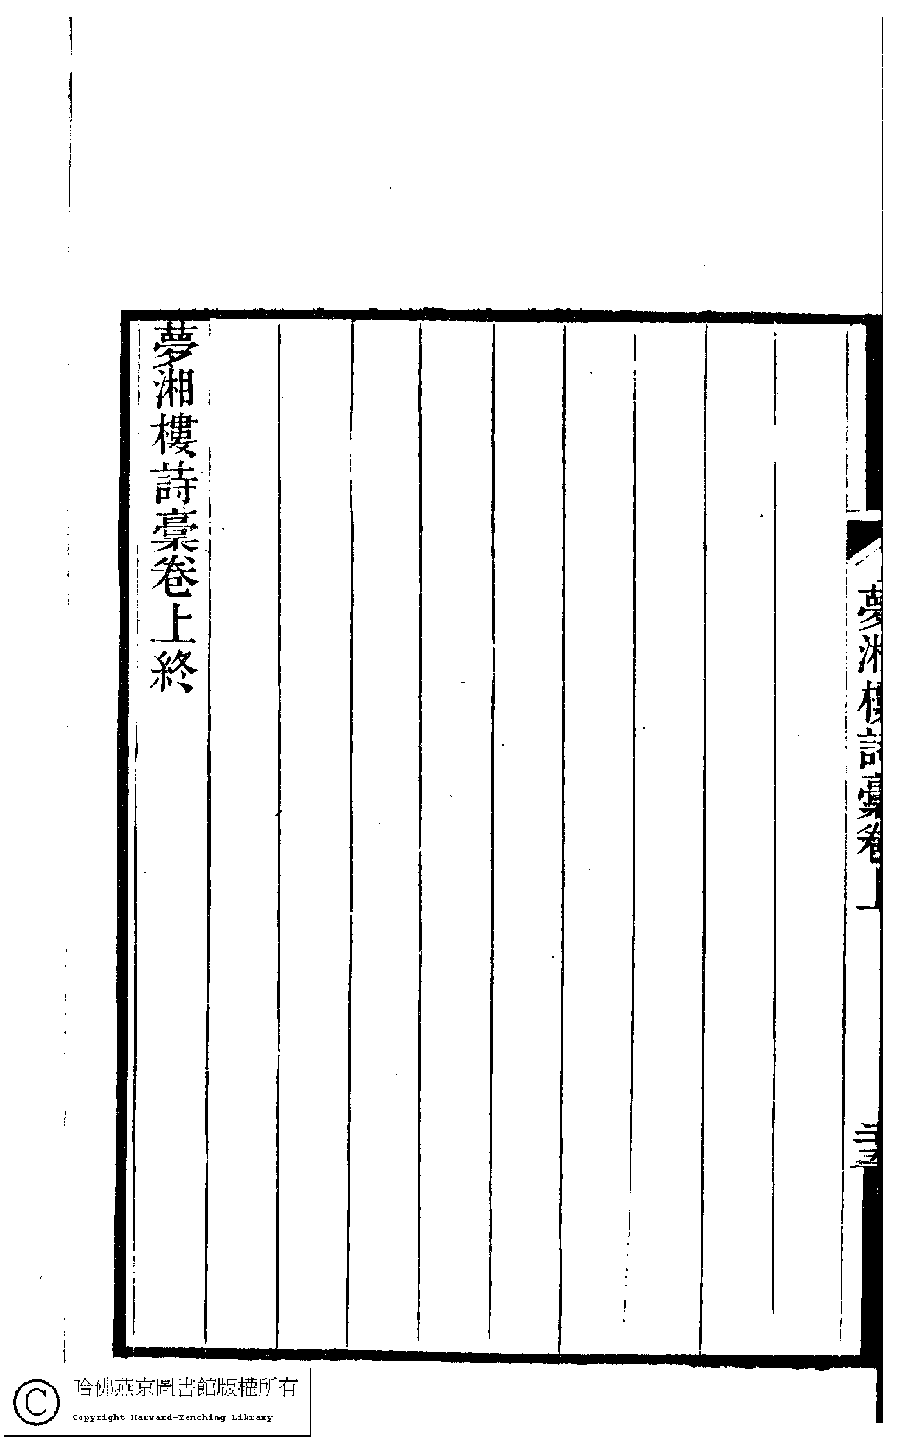 夢湘樓詩稾卷上
夢湘樓詩稾卷上終
哈佛燕京圖書館版權所有
Copyright Harvard-Yenching Library